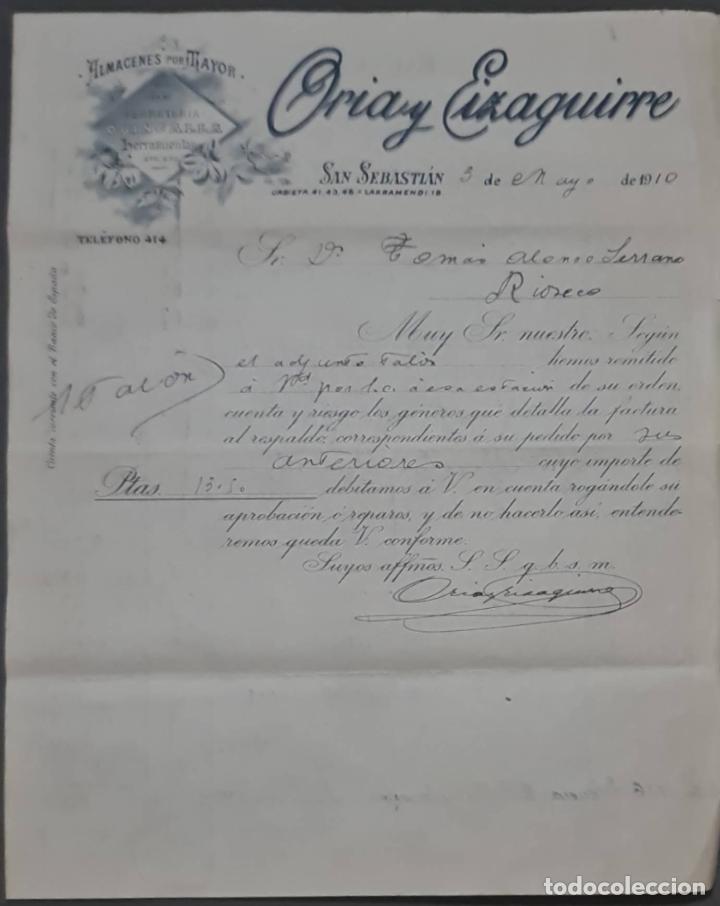 ALMACENES POR MAYOR
FERRETERIA
QUINCALLA
Herramientas
ETC. ETC.
TELÉFONO 414
Oria y Eizaguirre
SAN SEBASTIÁN 3 de Mayo de 1910
URBIETA 41. 43. 45 - LARRAMENDI. 18
Sr. Dn. Tomás Alonso Serrano
Rioseco
Cuenta corriente con el Banco de España
1 Talón
Muy Sr. nuestro: Según
el adjunto talón hemos remitido
á Vd por á esa estación de su orden,
cuenta y riesgo los géneros que detalla la factura
al respaldo, correspondientes á su pedido por sus
anteriores cuyo importe de
Ptas. 13.50 debitamos á V. en cuenta rogándole su
aprobación ó reparos, y de no hacerlo así, entende-
remos queda V. conforme.
Suyos affmos. S. S. q. b. s. m.
Oria y Eizaguirre
todocoleccion.net